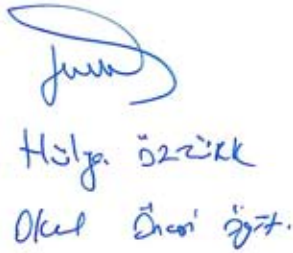 Hülya ÖZTÜRK
Okul Öncesi Öğrt.